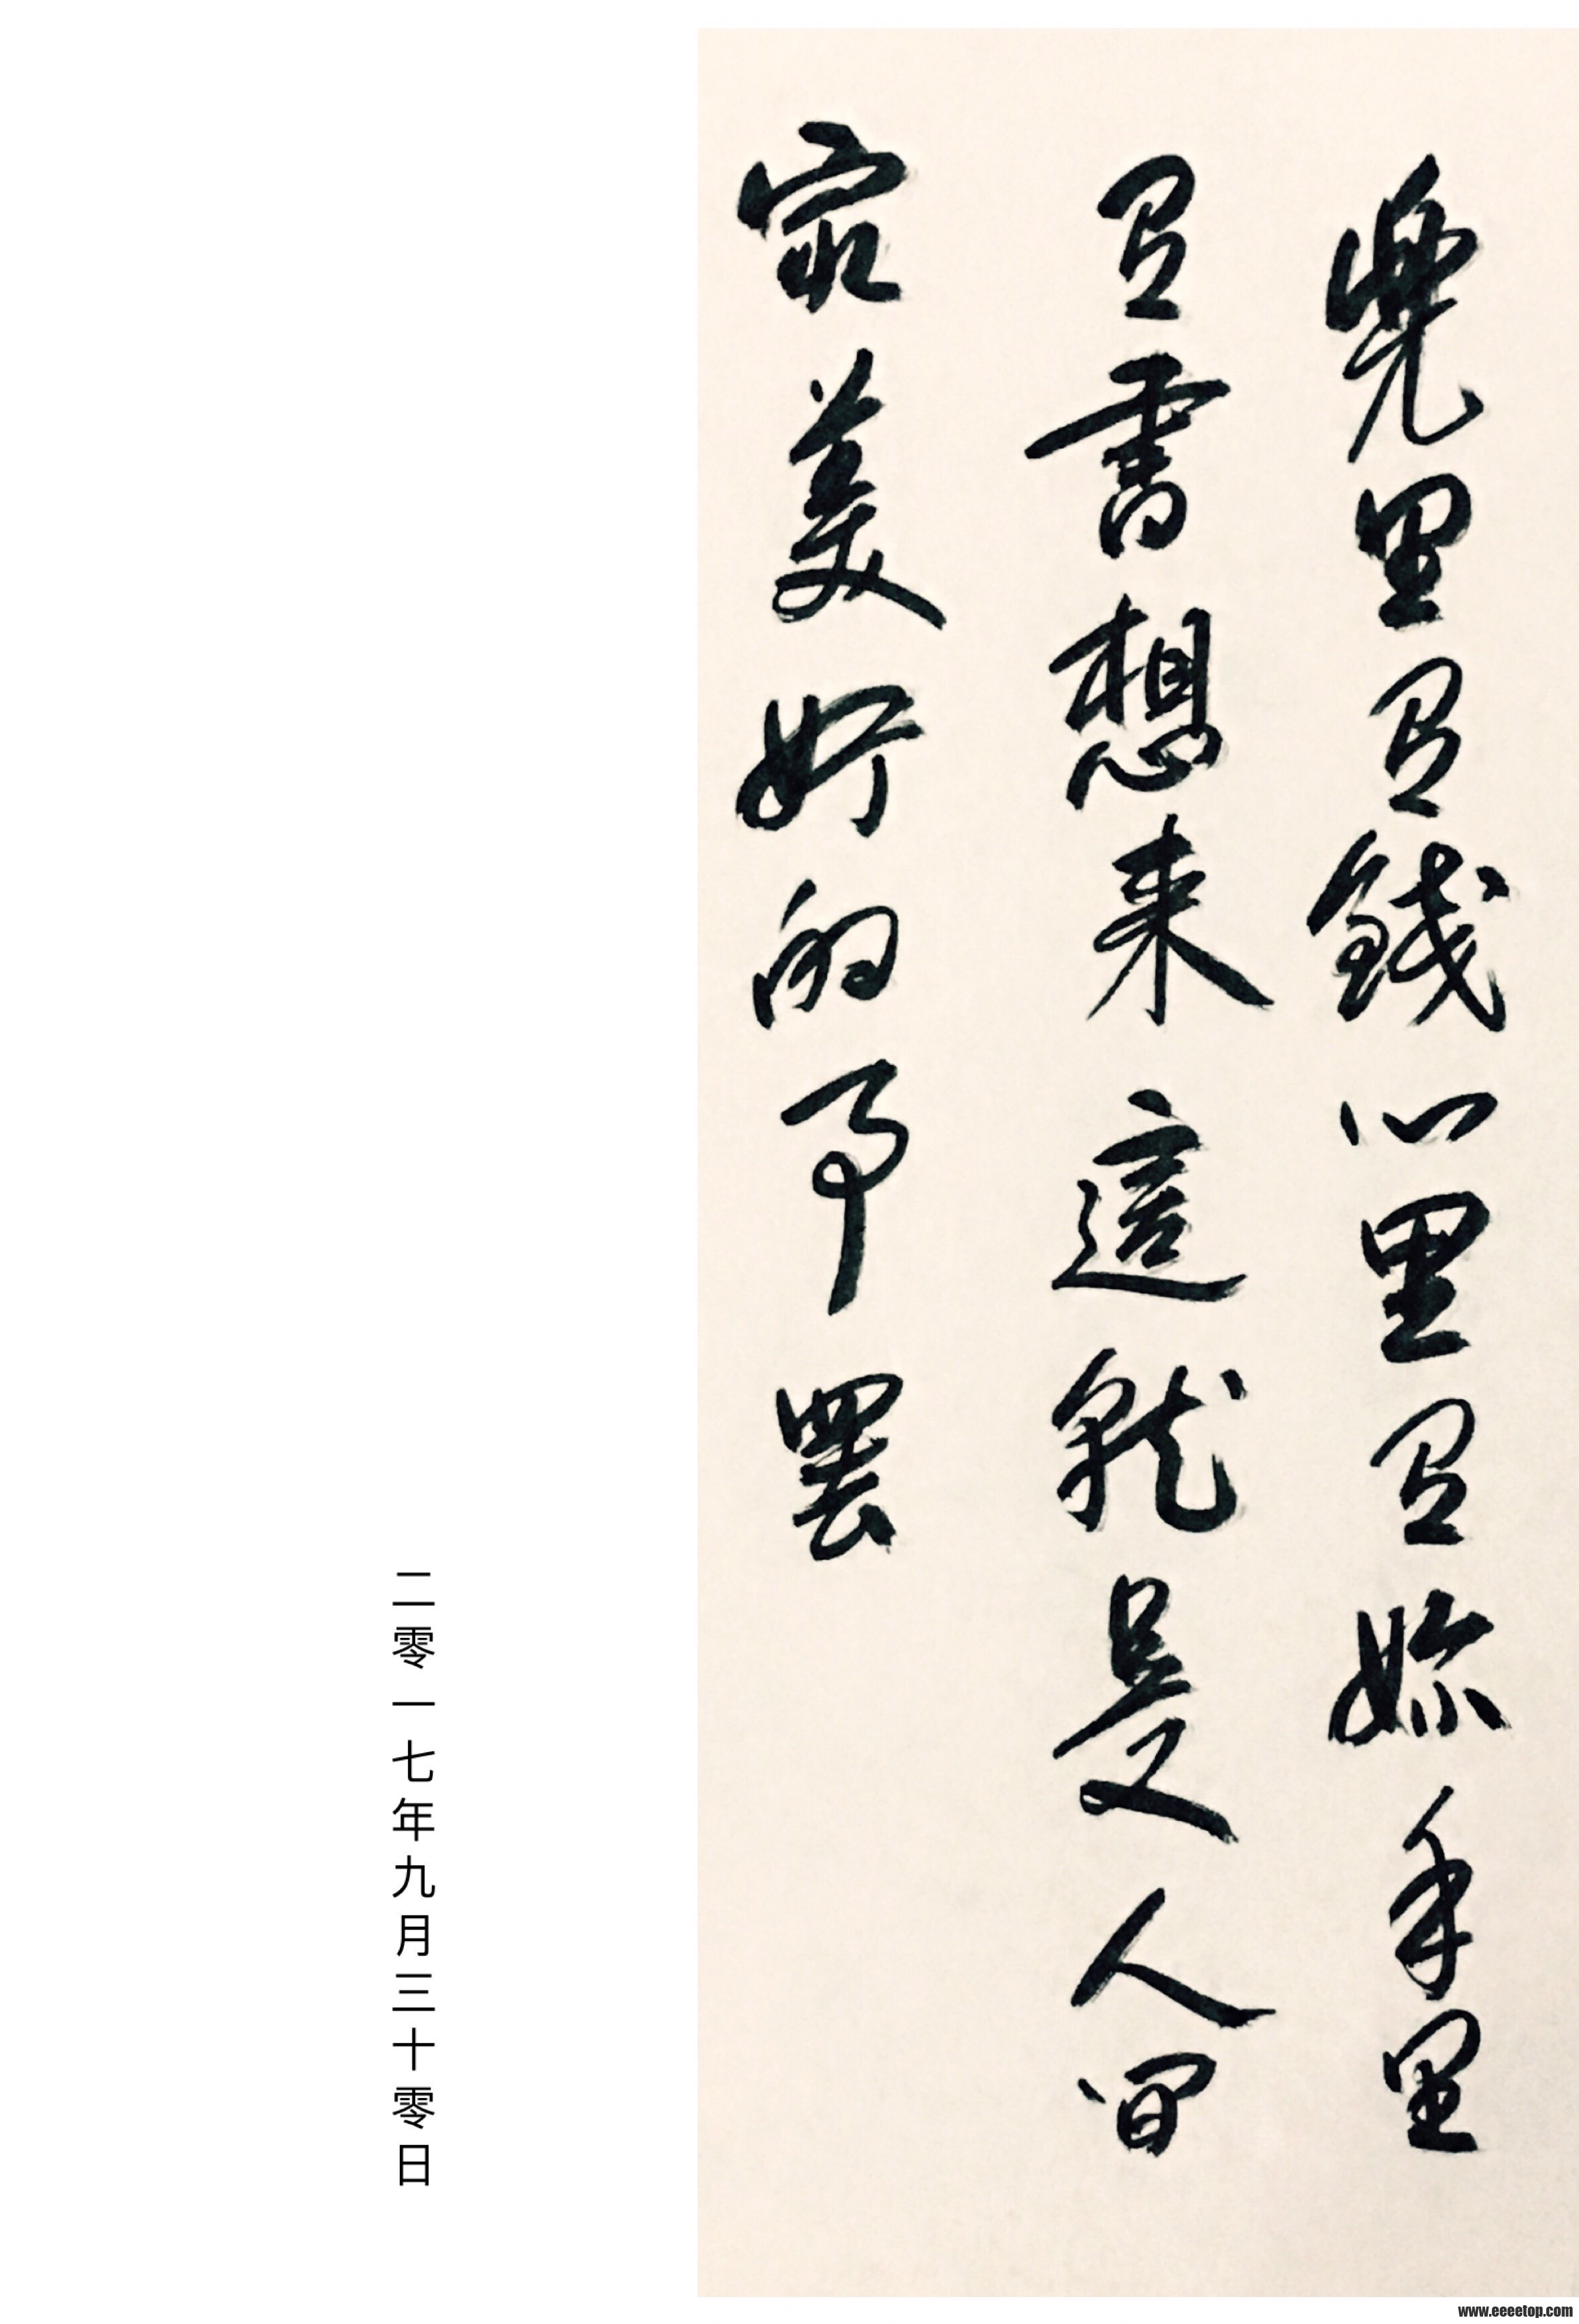 兜里有錢心里有妳手里
有書想来這就是人间
最美好的事罢
二零一七年九月三十零日
www.eeeetop.com